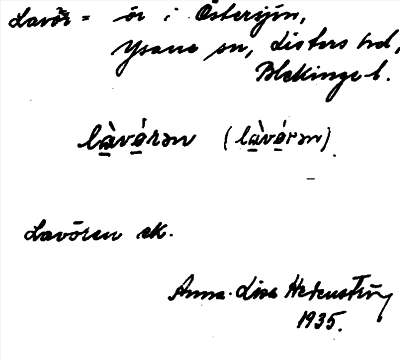 Lavör = ör i Östersjön,
Ysane sn, Listers hd,
Blekinge l.
làvö́rən (làvö́rən)
Lavören ek.
Anna-Lisa Hedenström
1935.